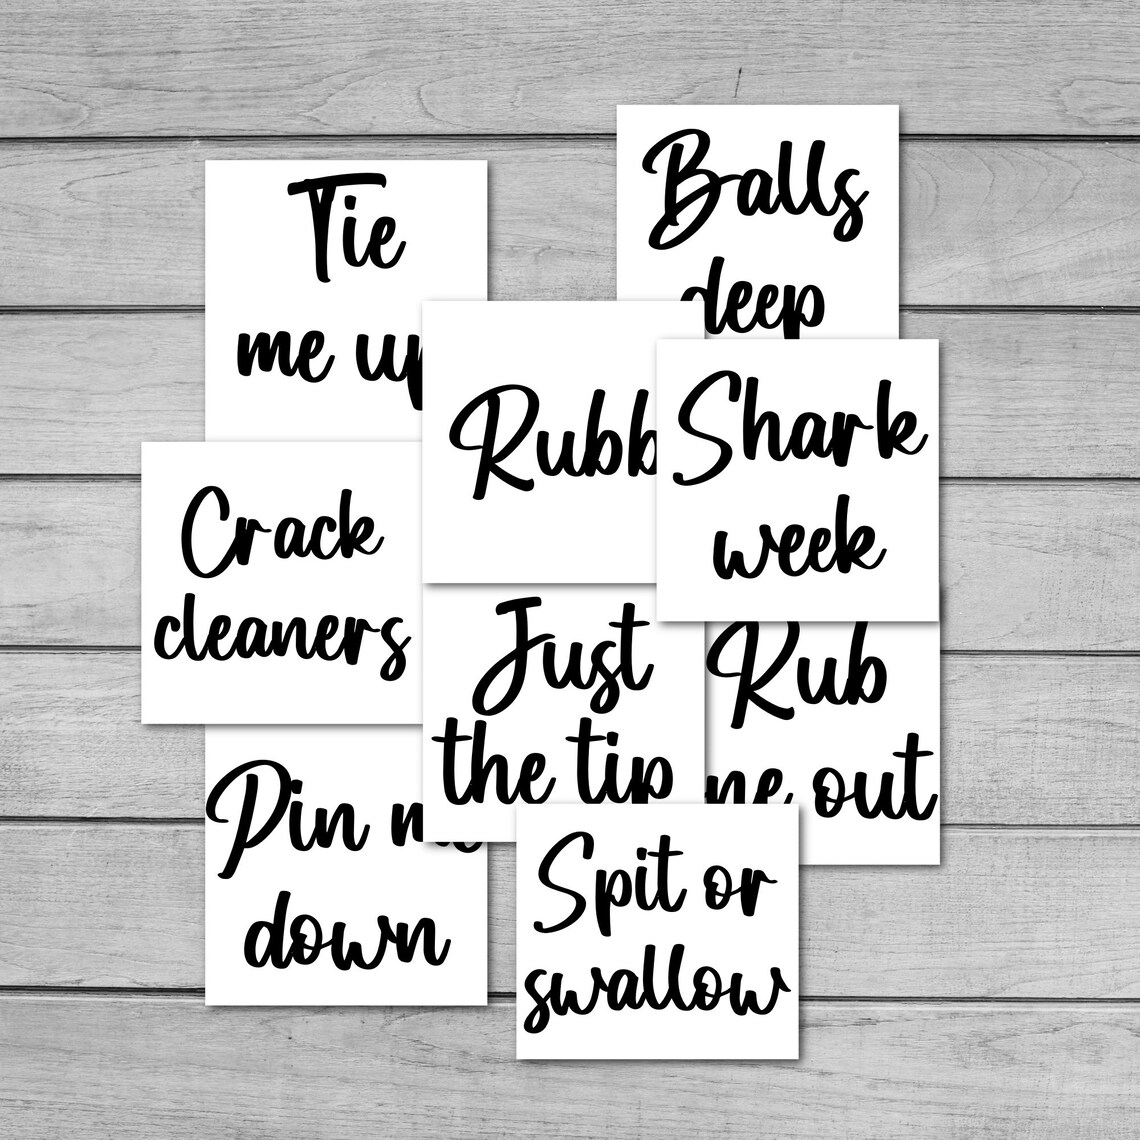 Tie
me up
Balls
deep
Rubb
Shark
week
Crack
cleaners
Just
the tip
Rub
me out
Pin me
down
Spit or
swallow